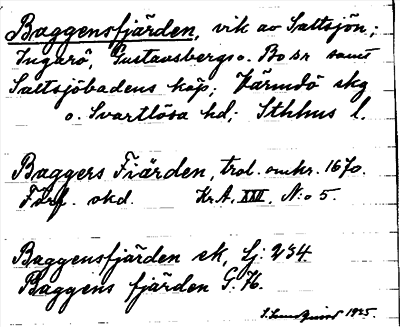 Baggensfjärden, vik av Saltsjön;
Ingarö, Gustavsbergs o. Bo sr samt
Saltsjöbadens köp; Värmdö skg
o. Svartlösa hd; Sthlms l.
Baggers Fiärden, trol. omkr. 1670.
Förf. okd. Kr.A. XXI, N:o 5.
Baggensfjärden ek, Lj: 234
Baggens fjärden G. K.
S. Lundquist 1925.